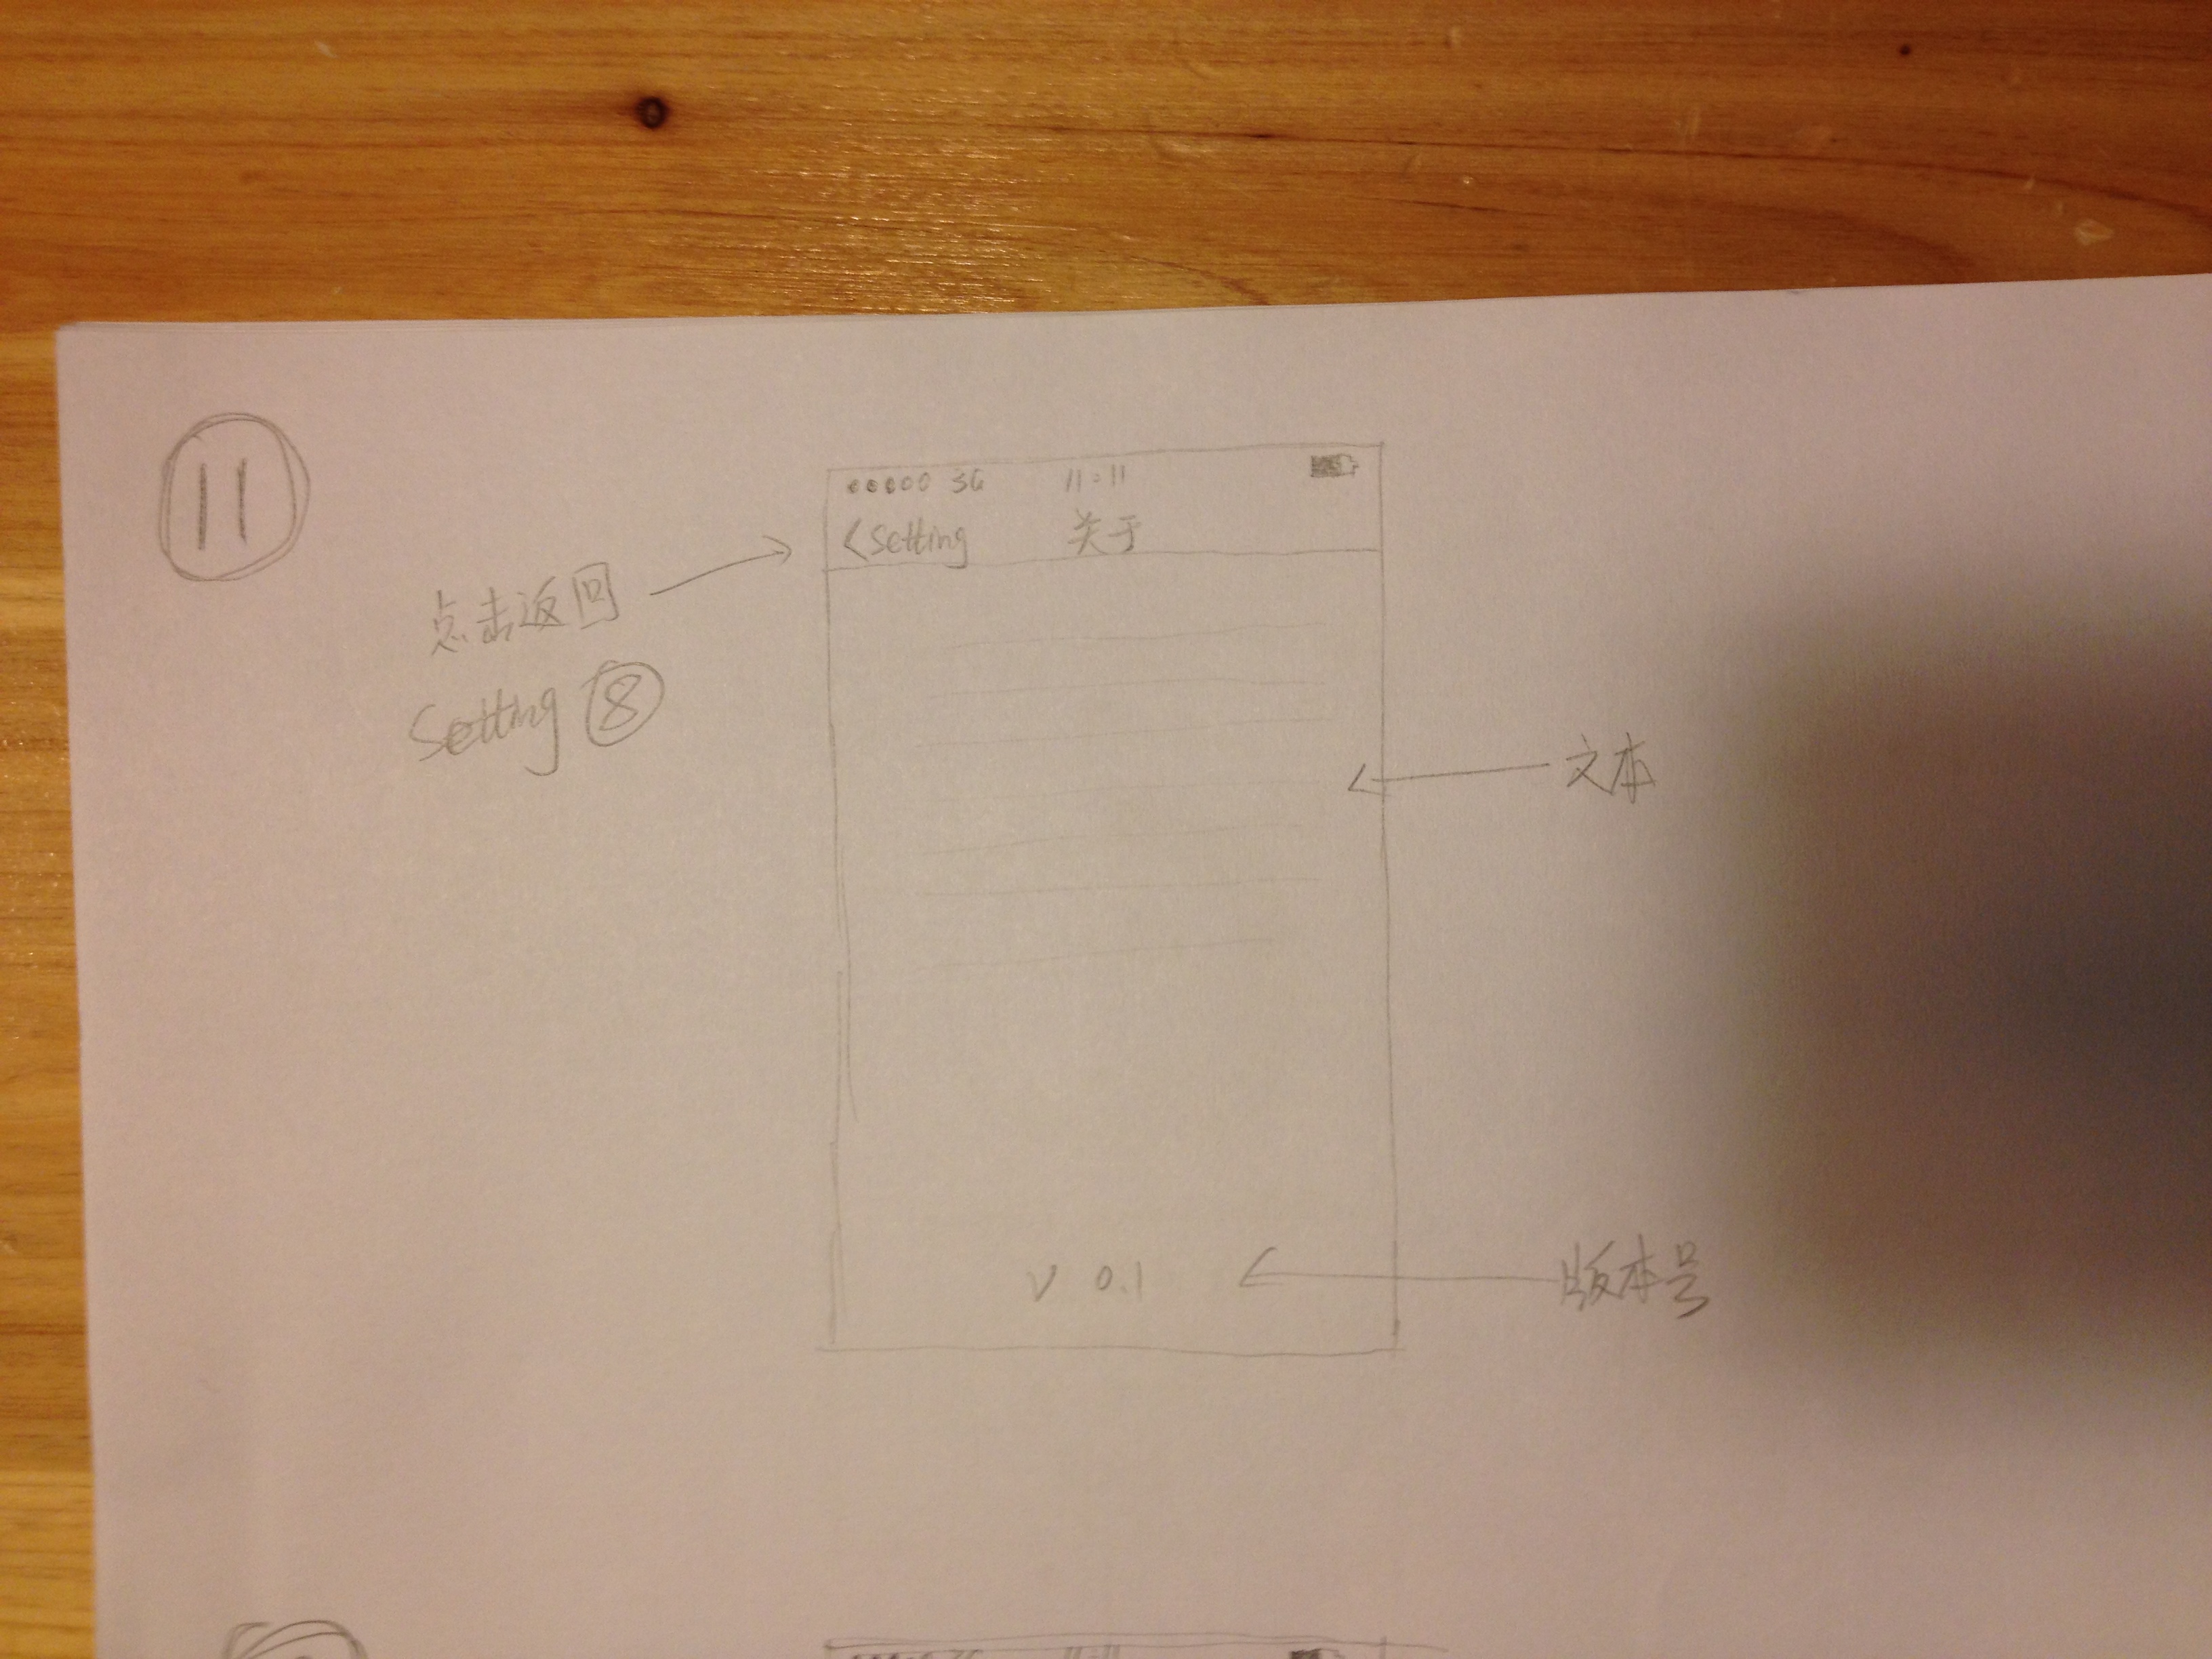 11
●●●○○ 3G 11:11
<Setting 关于
点击返回
Setting ⑧
文本
V 0.1
版本号
3G 11:11